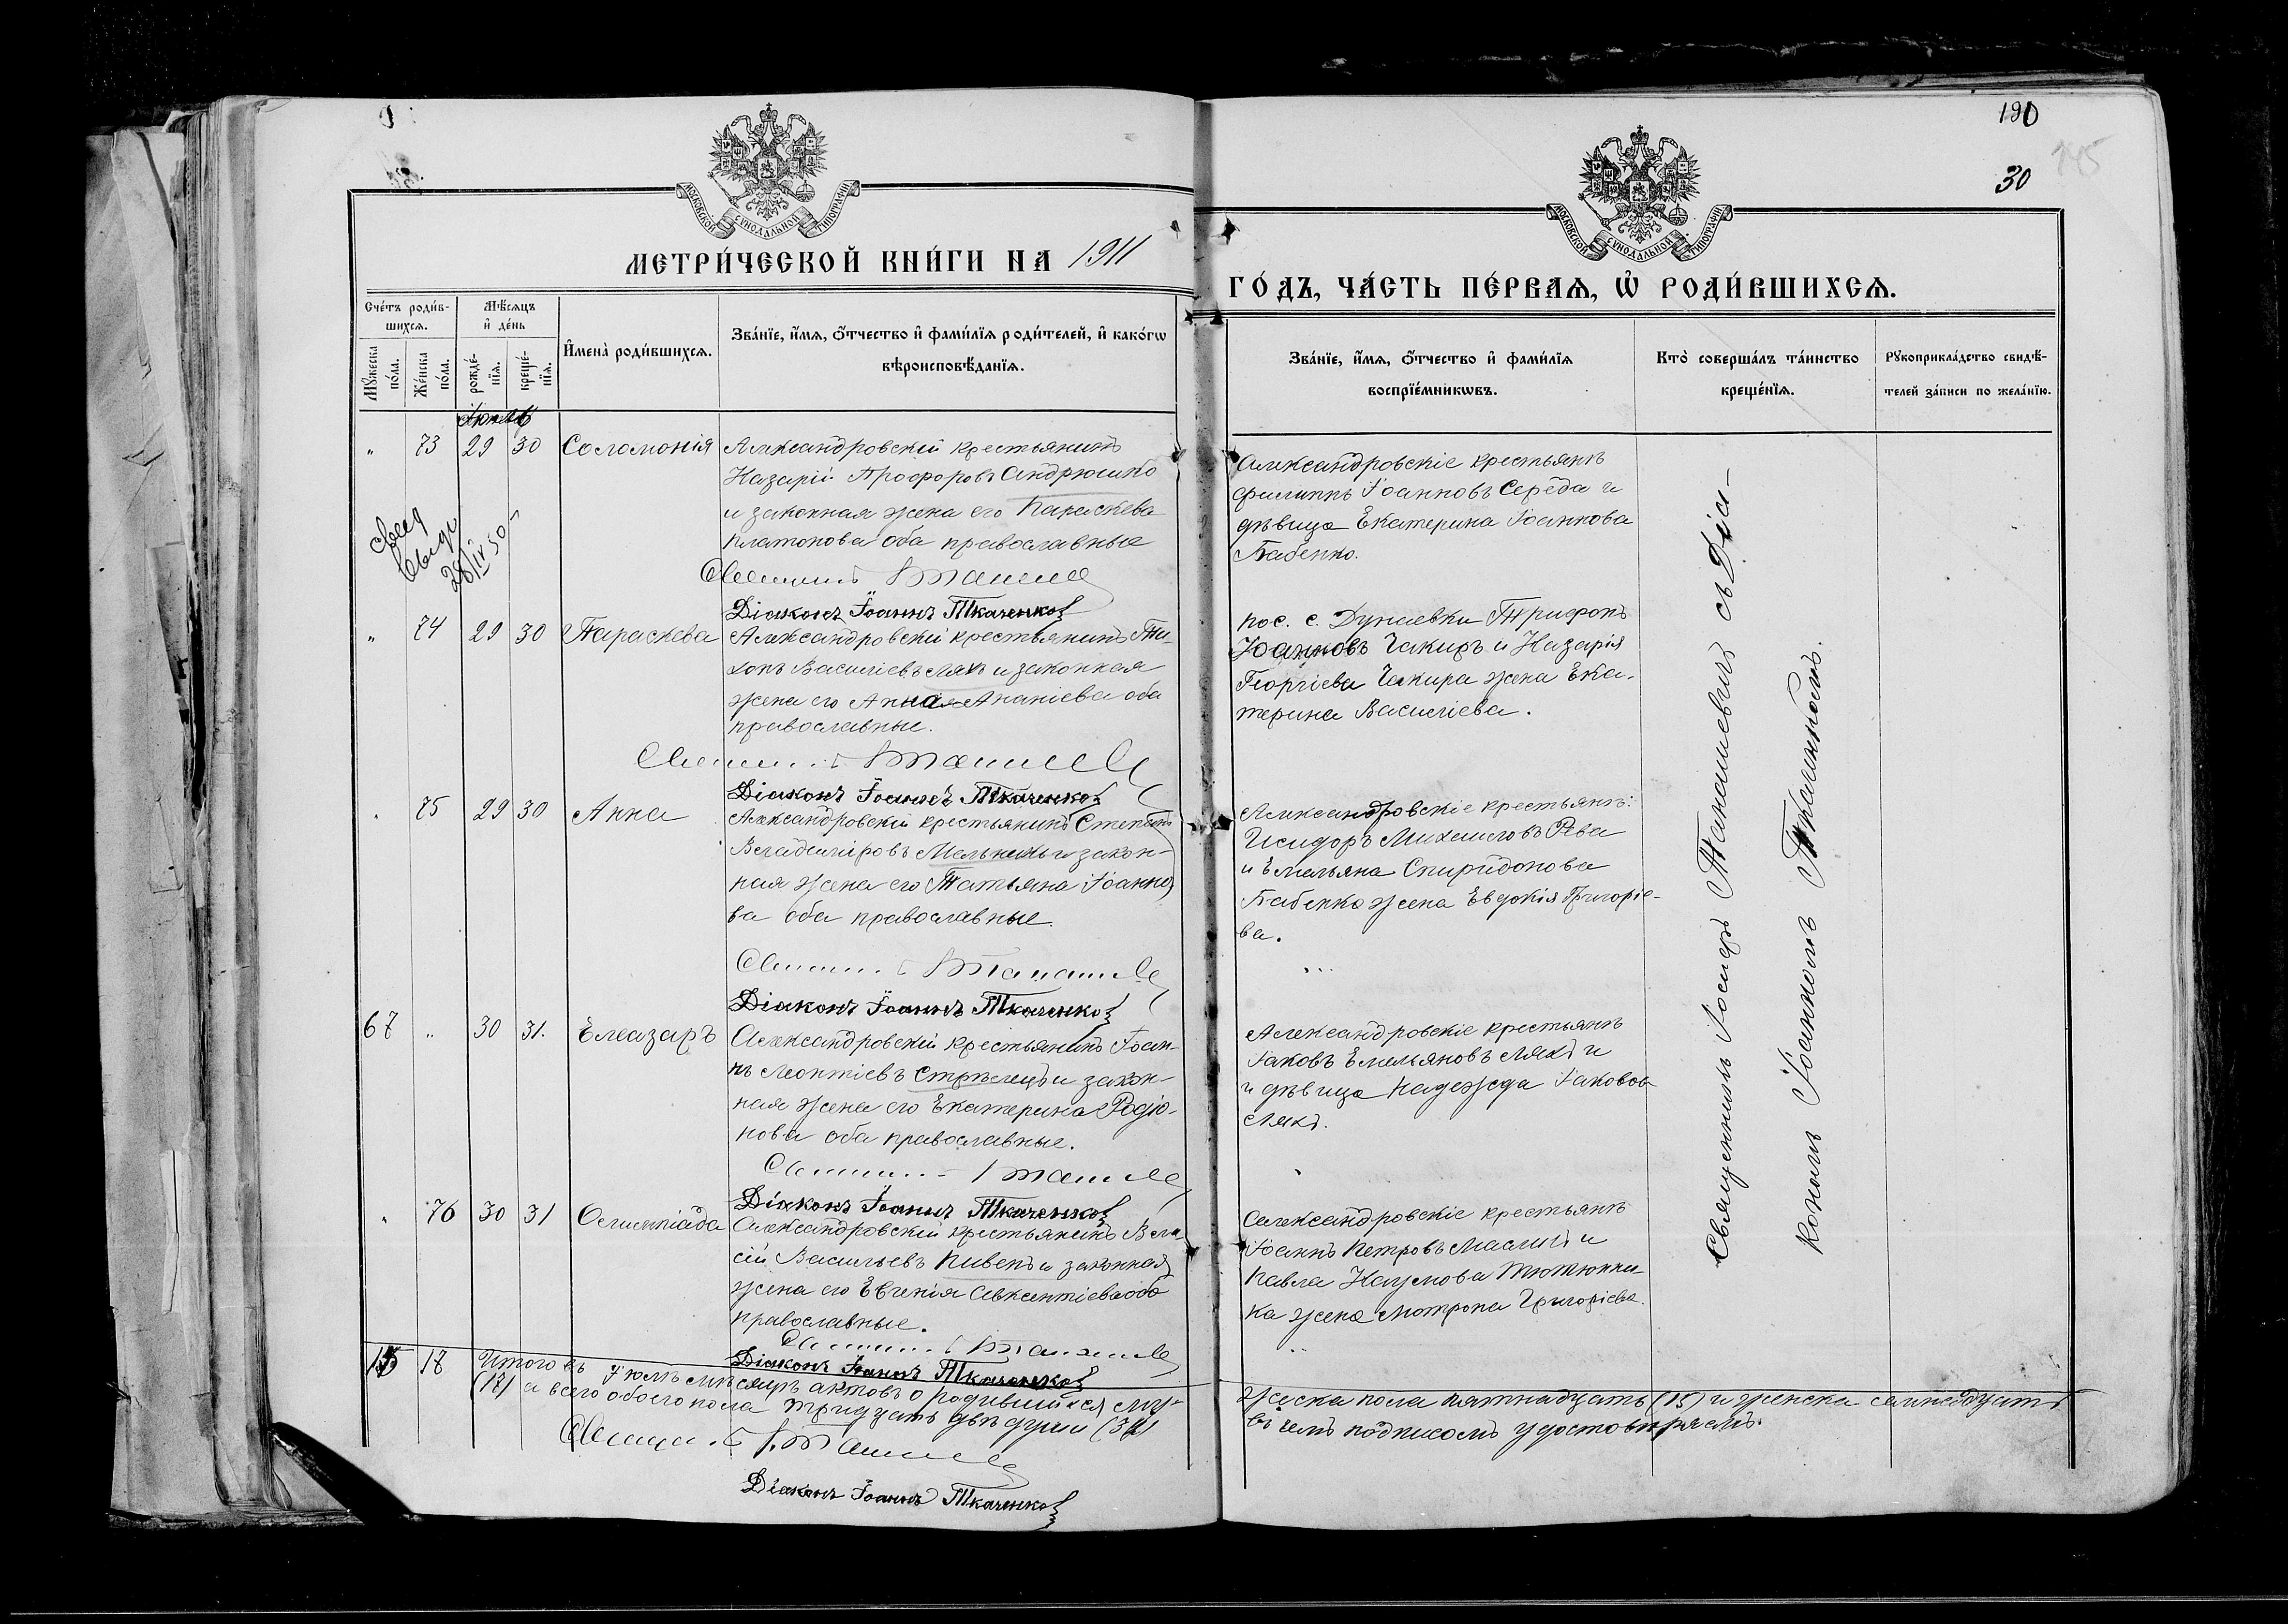 190
30
МОСКОВСКОЙ СѴНОДАЛЬНОЙ ТИПОГРАФІИ
МОСКОВСКОЙ СѴНОДАЛЬНОЙ ТИПОГРАФІИ
МЕТРИ́ЧЕСКОЙ КНИ́ГИ НА 1911
ГО́ДЪ, ЧА́СТЬ ПЕ́РВАѦ, Ѽ РОДИ́ВШИХСѦ.
Сче́тъ роди́в-
шихсѧ.
Мѣ́сѧцъ
и҆ де́нь
Мꙋ́жеска
по́ла.
Же́нска
по́ла.
рожде́-
нїѧ.
креще́-
нїѧ.
И҆мена̀ роди́вшихсѧ.
Зва́нїе, и҆́мѧ, ѻ҆́тчество и҆ фами́лїѧ роди́телей, и҆ како́гѡ
вѣроисповѣ́данїѧ.
Зва́нїе, и҆́мѧ, ѻ҆́тчество и҆ фами́лїѧ
воспрїе́мникѡвъ.
Кто̀ соверша́лъ та́инство
креще́нїѧ.
Рꙋкоприкла́дство свидѣ́-
телей за́писи по жела́нїю.
" 73 29 30 Соломонія
Александровскій крестьянинъ
Назарій Просфоровъ Андрюшко
и законная жена его Параскева
Платонова оба православные
Діаконъ Іоаннъ Ткаченко
Александровскіе крестьяне
Филиппъ Іоанновъ Середа и
дѣвица Екатерина Іоаннова
Бабенко.
28/IV 50
" 74 29 30 Параскева
Александровскій крестьянинъ Ти-
хонъ Василіевъ Ляхъ и законная
жена его Анна Ананіева оба
православные.
Діаконъ Іоаннъ Ткаченко
пос. с. Дунаевки Трифонъ
Іоанновъ Чакиръ и Назарія
Георгіева Чакира жена Ека-
терина Василіева.
75 29 30 Анна
Александровскій крестьянинъ Стефанъ
Владиміровъ Мельникъ и закон-
ная жена его Татьяна Іоанно-
ва оба православные.
Діаконъ Іоаннъ Ткаченко
Александровскіе крестьяне:
Исидоръ Михаиловъ Рева
и Емельяна Спиридонова
Бабенко жена Евдокія Григоріе-
ва.
67 " 30 31. Елеазаръ
Александровскій крестьянинъ Іоан-
нъ Леонтіевъ Стрѣлецъ и закон-
ная жена его Екатерина Родіо-
нова оба православные.
Діаконъ Іоаннъ Ткаченко
Александровскіе крестьяне
Іаковъ Емельяновъ Ляхъ и
и дѣвица Надежда Іаковова
Ляхъ.
" 76 30 31 Олимпіада
Александровскій крестьянинъ Вла-
сій Васильевъ Пивень и законная
жена его Евгенія Авксентіева оба
православные.
Діаконъ Іоаннъ Ткаченко
Александровскіе крестьяне
Іоаннъ Петровъ Маслій и
Павла Наумова Тютюнни-
ка жена Мотрона Григоріева.
Священникъ Іосифъ Танасевичъ съ Діа-
кономъ Іоанномъ Ткаченкомъ.
15 17 Итого въ Іюлѣ мѣсяцѣ актовъ о родившихся му-
жеска пола пятнадцать (15) и женска семнадцать
(17) а всего обоего пола тридцать двѣ души (32)
въ чемъ подписомъ удостовѣряемъ.
Діаконъ Іоаннъ Ткаченко